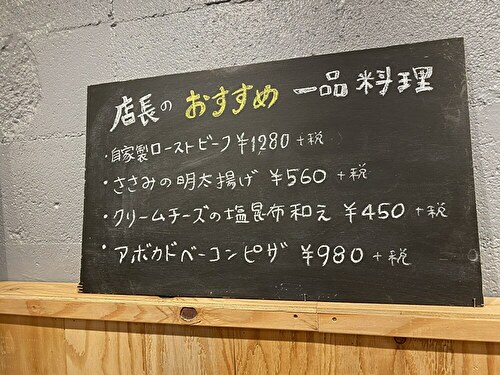 店長の おすすめ 一品 料理
・自家製ローストビーフ ¥1280 +税
・ささみの明太揚げ ¥560 +税
・クリームチーズの塩昆布和え ¥450 +税
・アボカドベーコンピザ ¥980 +税